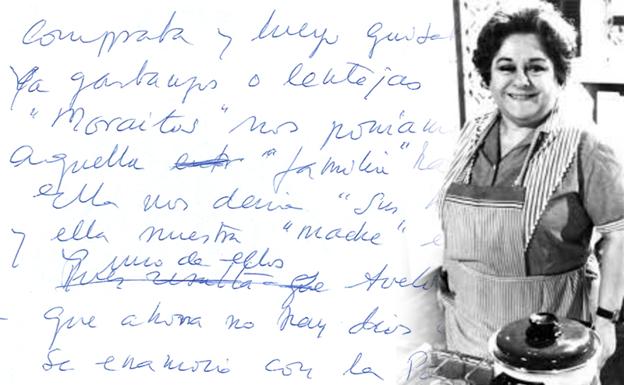 Compraba y luego guisa
Ya garbanzos o lentejas
"Moraitos" nos poníam
aquella "familia" ha
Ella nos decía "Sus
y ella nuestra "madre" e
A uno de ellos
y Pues resulta que Avelo
- que ahora no hay dios
Se enamoró con la P